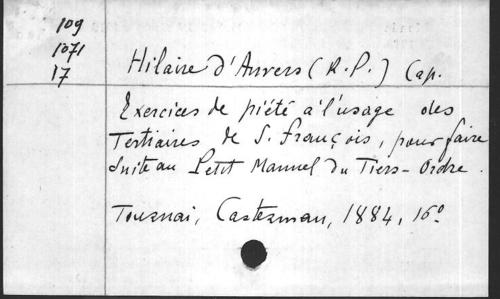 109
1071
17
Hilaire d'Anvers (R.P.) Cap.
Exercices de piété à l'usage des
Tertiaires de S. François, pour faire
suite au Petit Manuel du Tiers-Ordre.
Tournai, Casterman, 1884, 16º